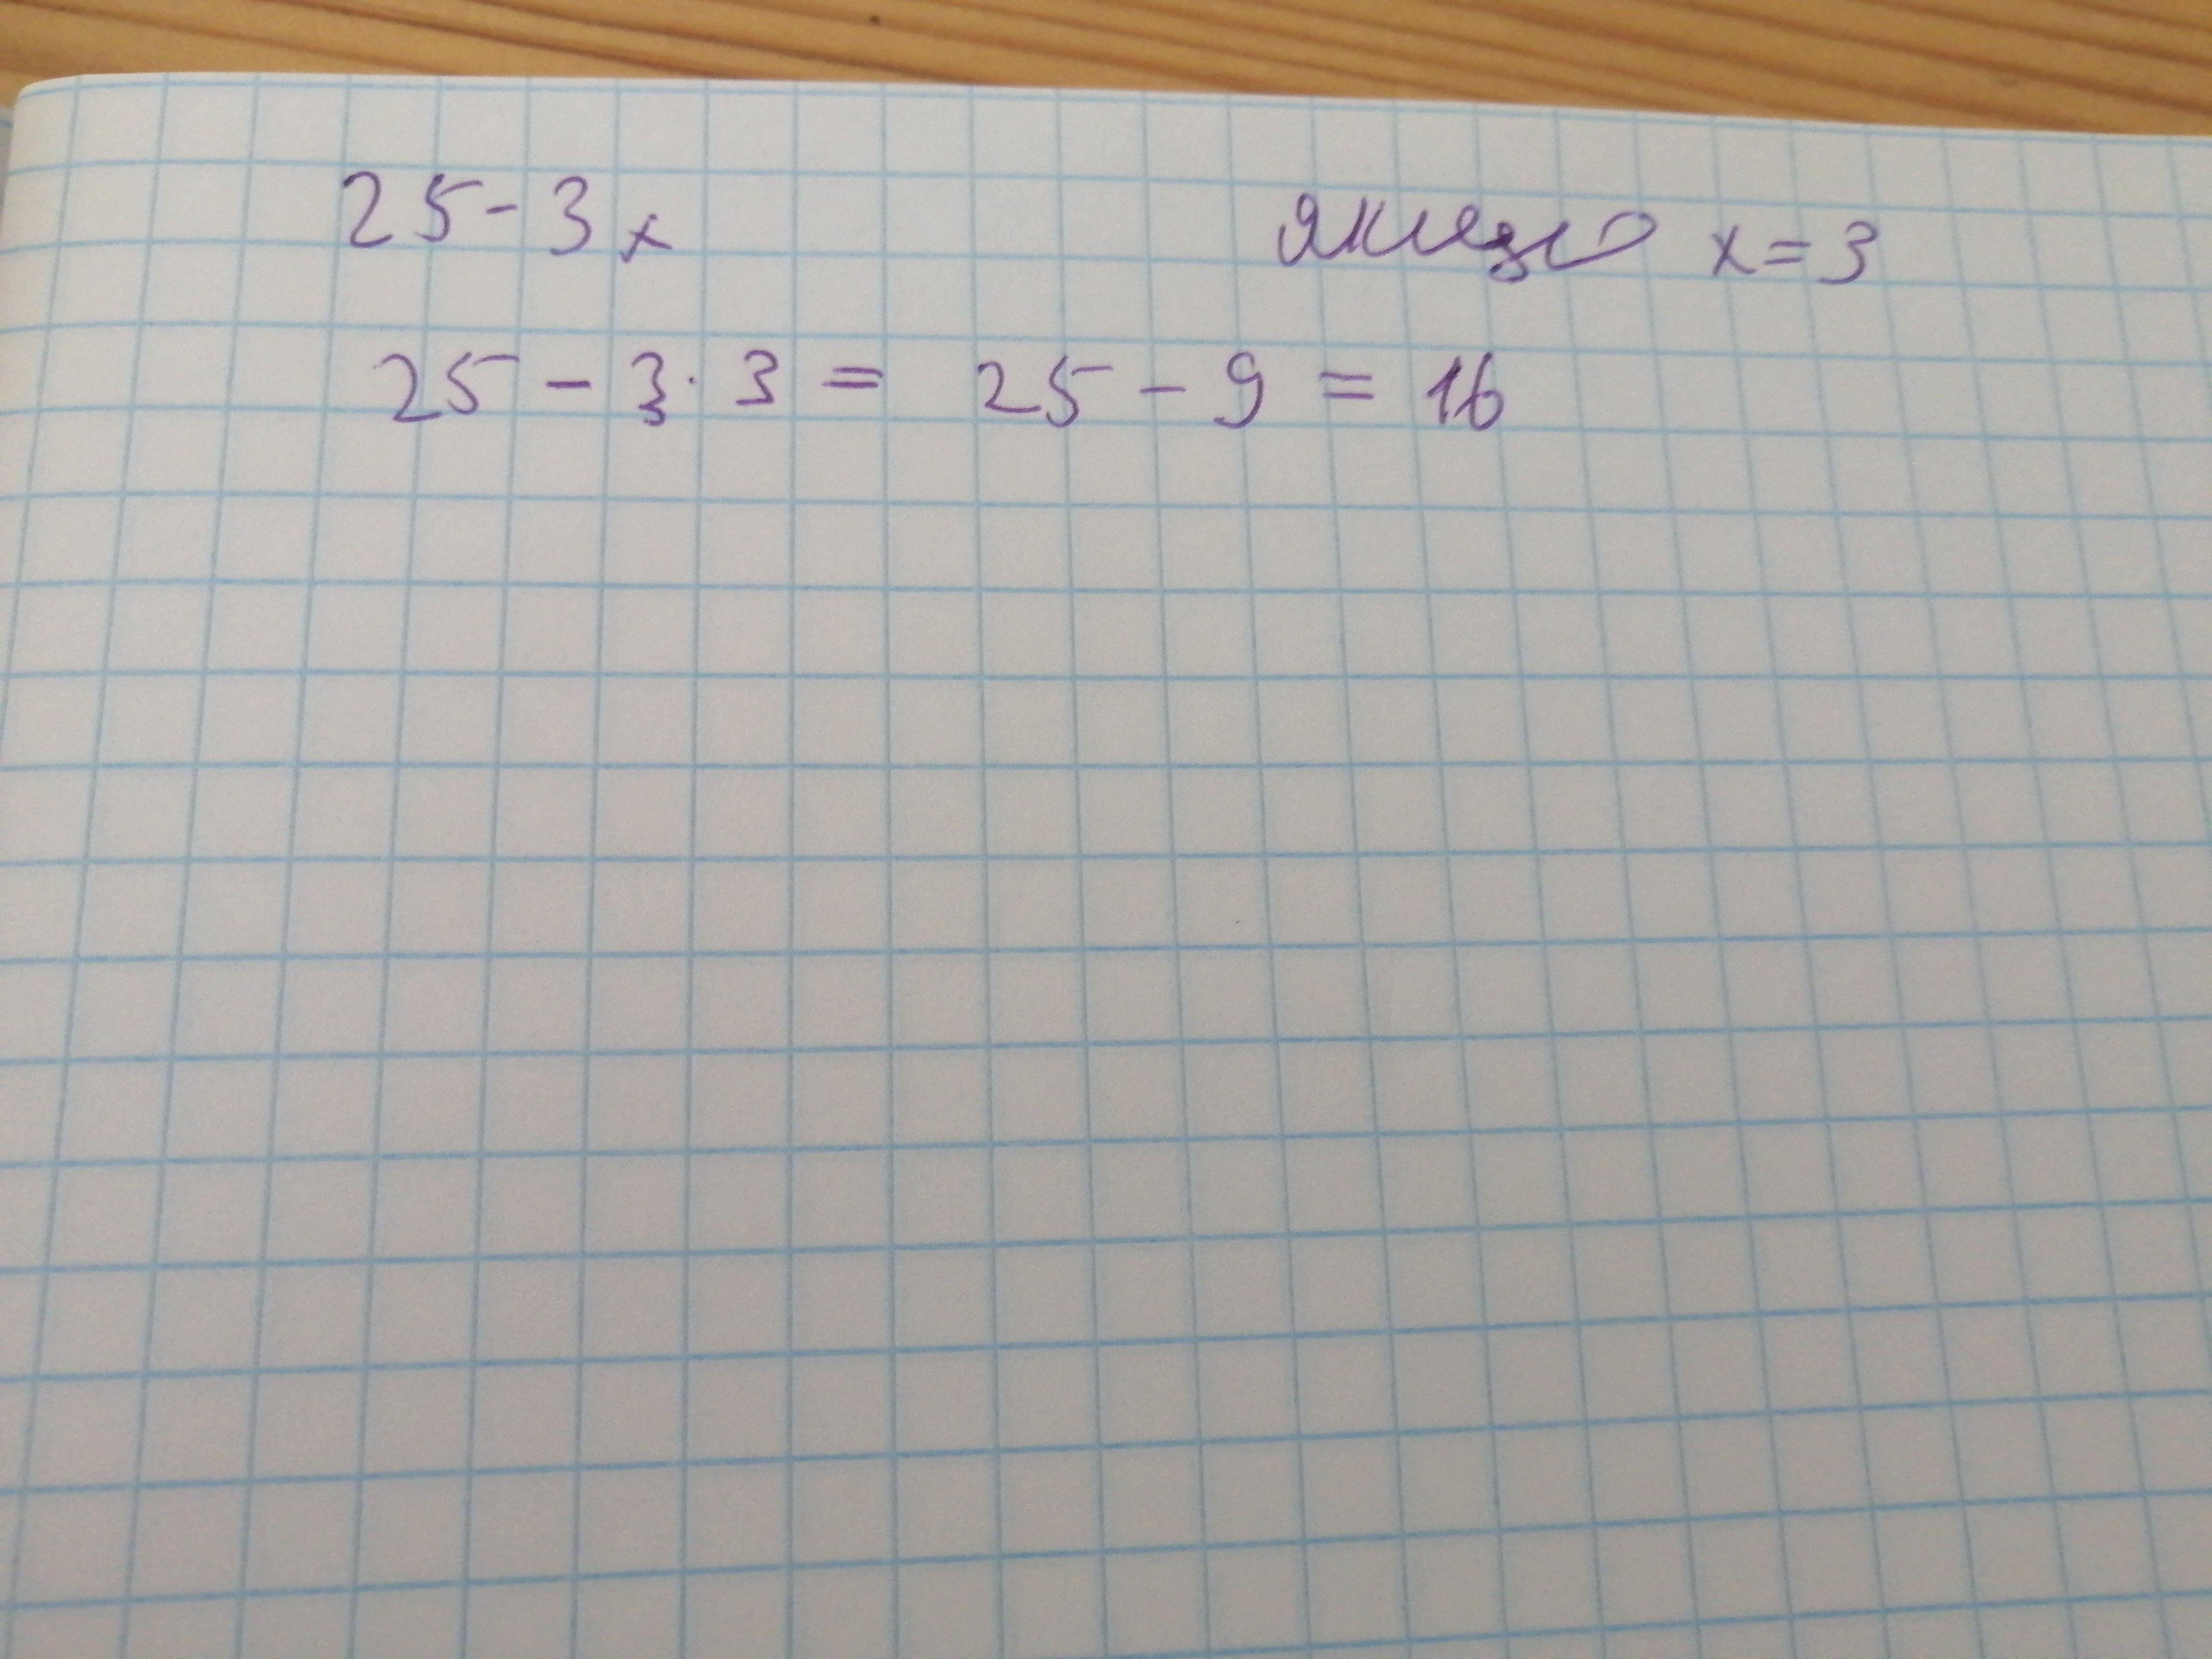 25 - 3x якщо x = 3
25 - 3 · 3 = 25 - 9 = 16